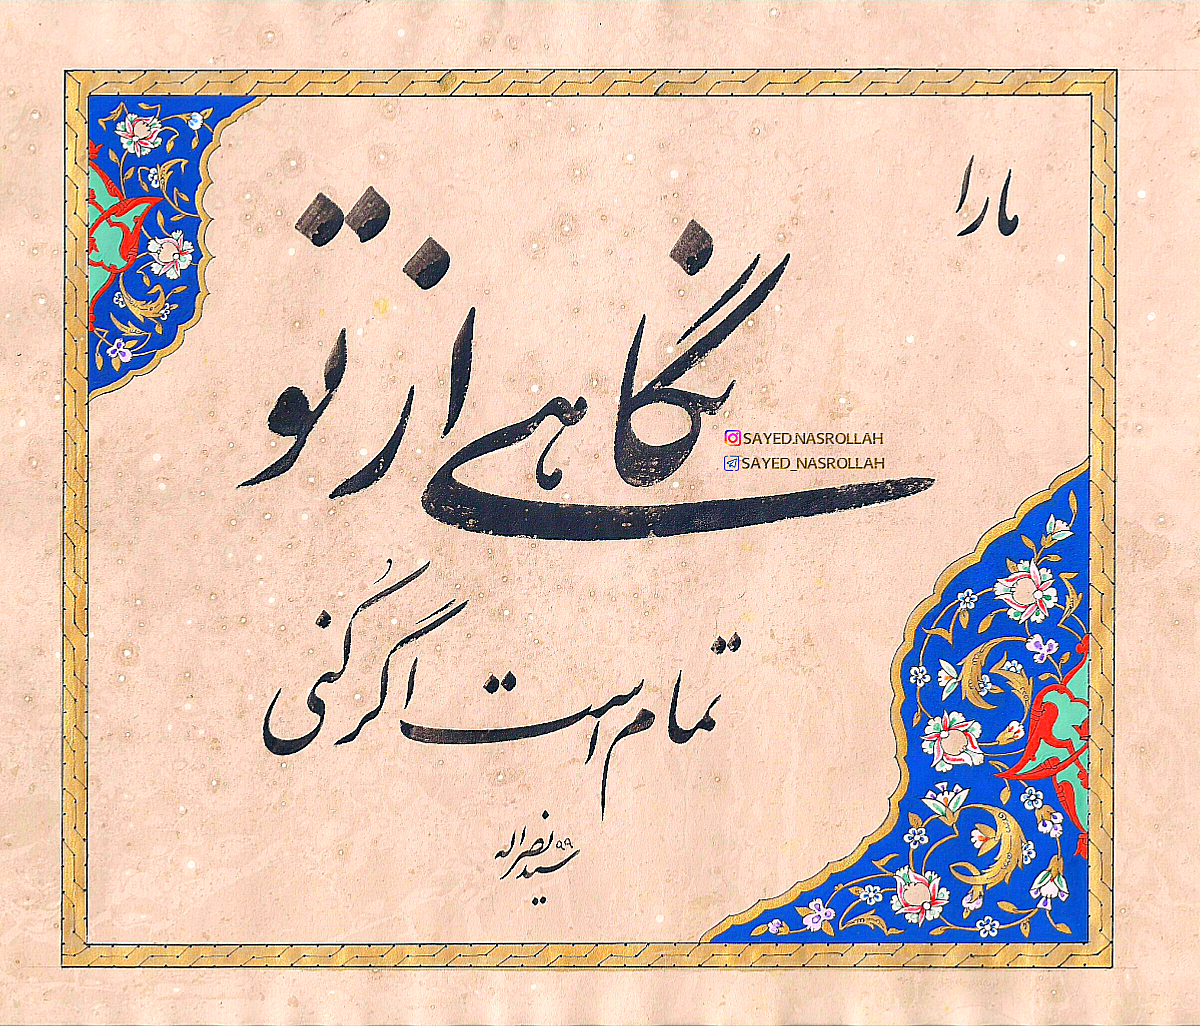 ما را
نگاهی از تو
SAYED.NASROLLAH
SAYED_NASROLLAH
تمام است اگر کُنی
سید نصراله ۹۹